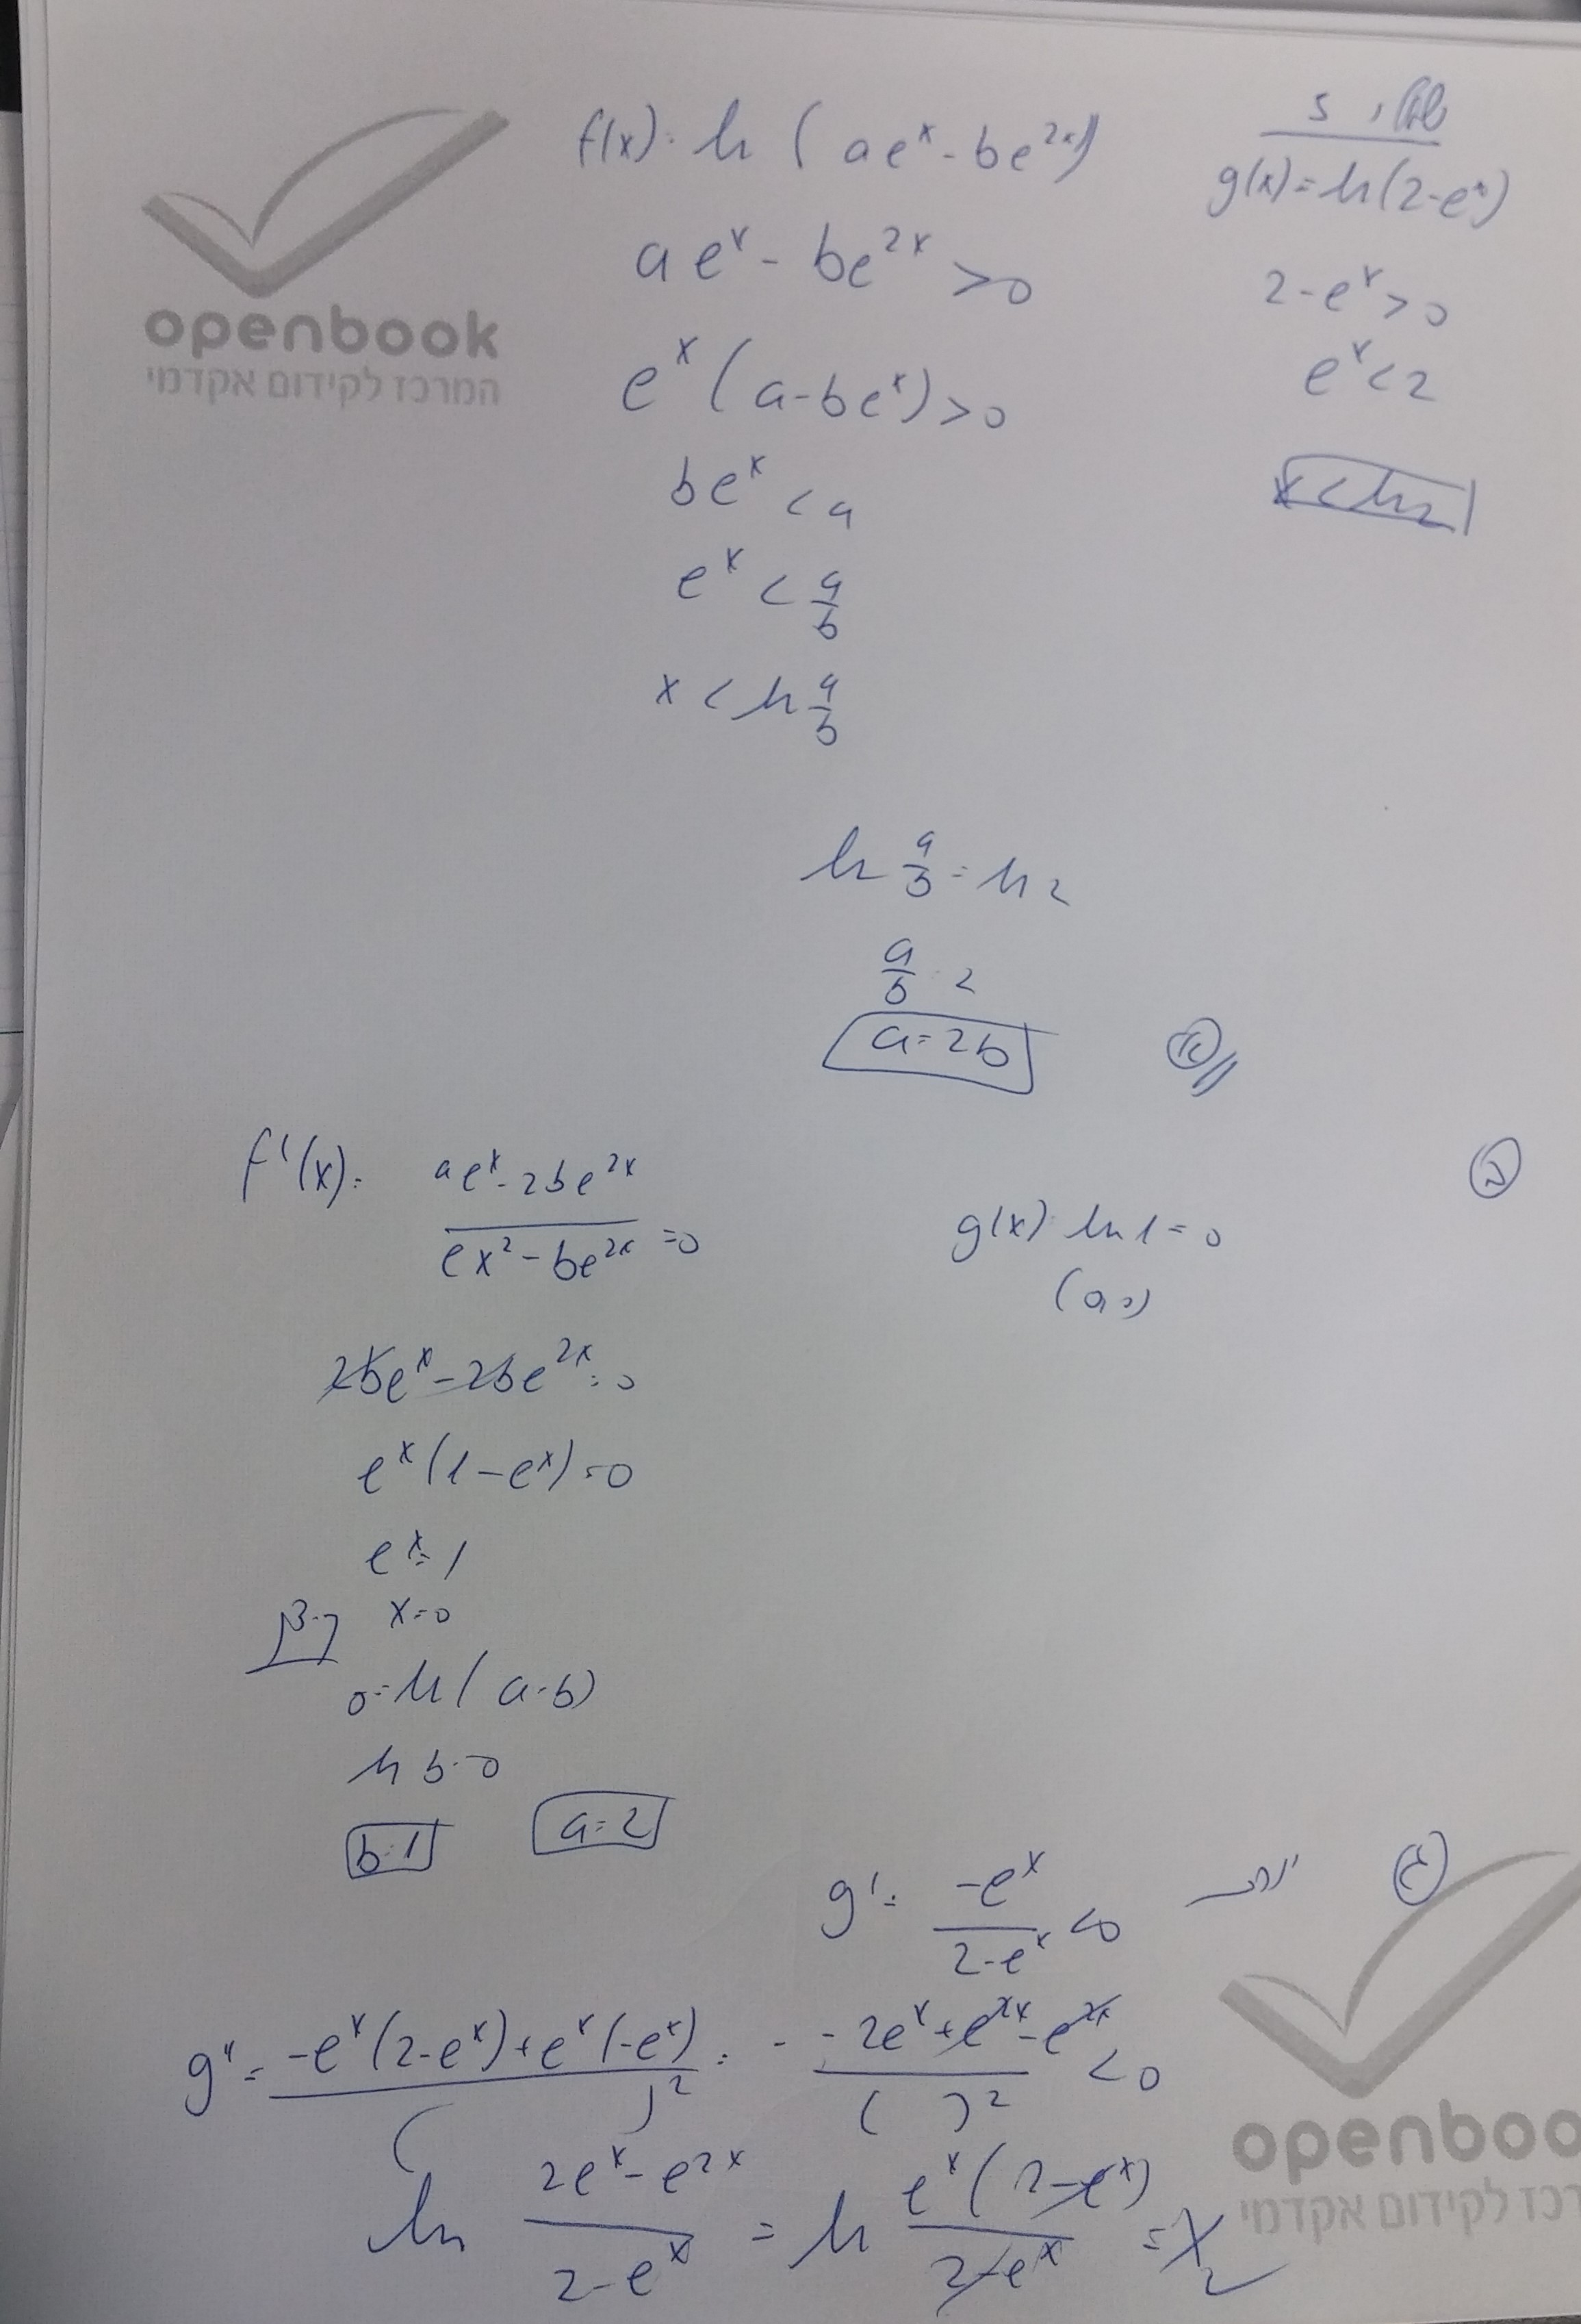 openbook
המרכז לקידום אקדמי
שאלה 5
f(x) = ln (ae^x - be^{2x})
g(x) = ln(2-e^x)
ae^x - be^{2x} > 0
2-e^x > 0
e^x (a-be^x) > 0
e^x < 2
be^x < a
x < ln2
e^x < a/b
x < ln a/b
ln a/b = ln 2
a/b = 2
a = 2b
א
f'(x) = (ae^x - 2be^{2x})/(ex^2 - be^{2x}) = 0
ב
g(x) = ln 1 = 0
(0,0)
2be^x - 2be^{2x} = 0
e^x (1-e^x) = 0
e^x = 1
x = 0
0 = ln (a-b)
ln b = 0
b = 1
a = 2
g' = -e^x/(2-e^x) < 0
g'' = (-e^x(2-e^x)+e^x(-e^x))/( )^2 = (-2e^x+e^{2x}-e^{2x})/( )^2 < 0
ln (2e^x-e^{2x})/(2-e^x) = ln e^x(2-e^x)/(2-e^x) = x
openboo
רכז לקידום אקדמי